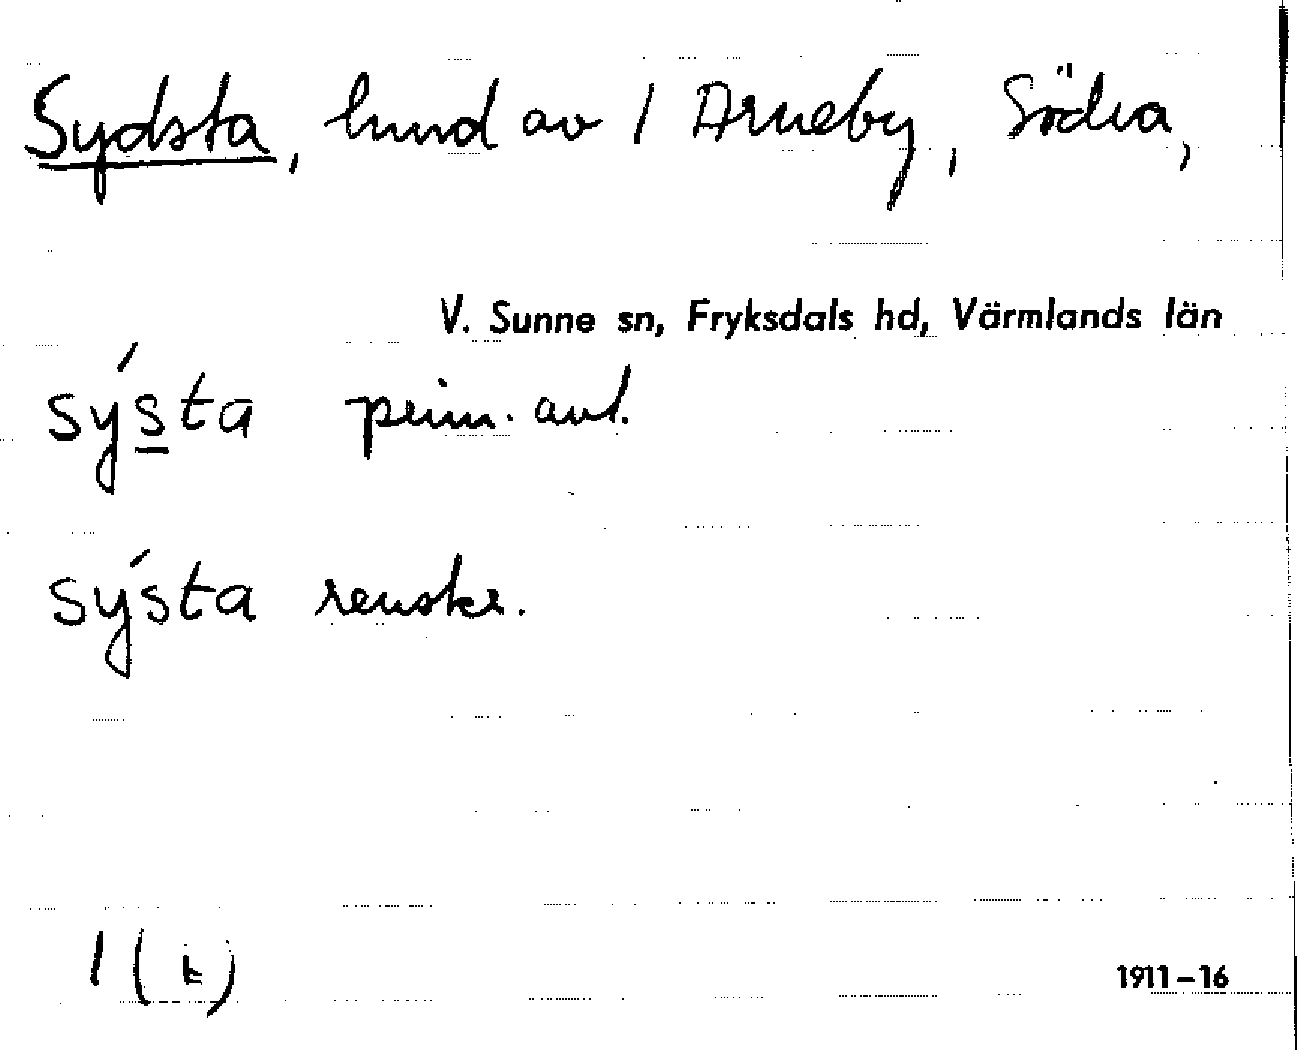 Sydsta, hmd av 1 Arneby, Södra,
V. Sunne sn, Fryksdals hd, Värmlands län
sýsta prim. anl.
sýsta renskr.
1 (k)
1911–16